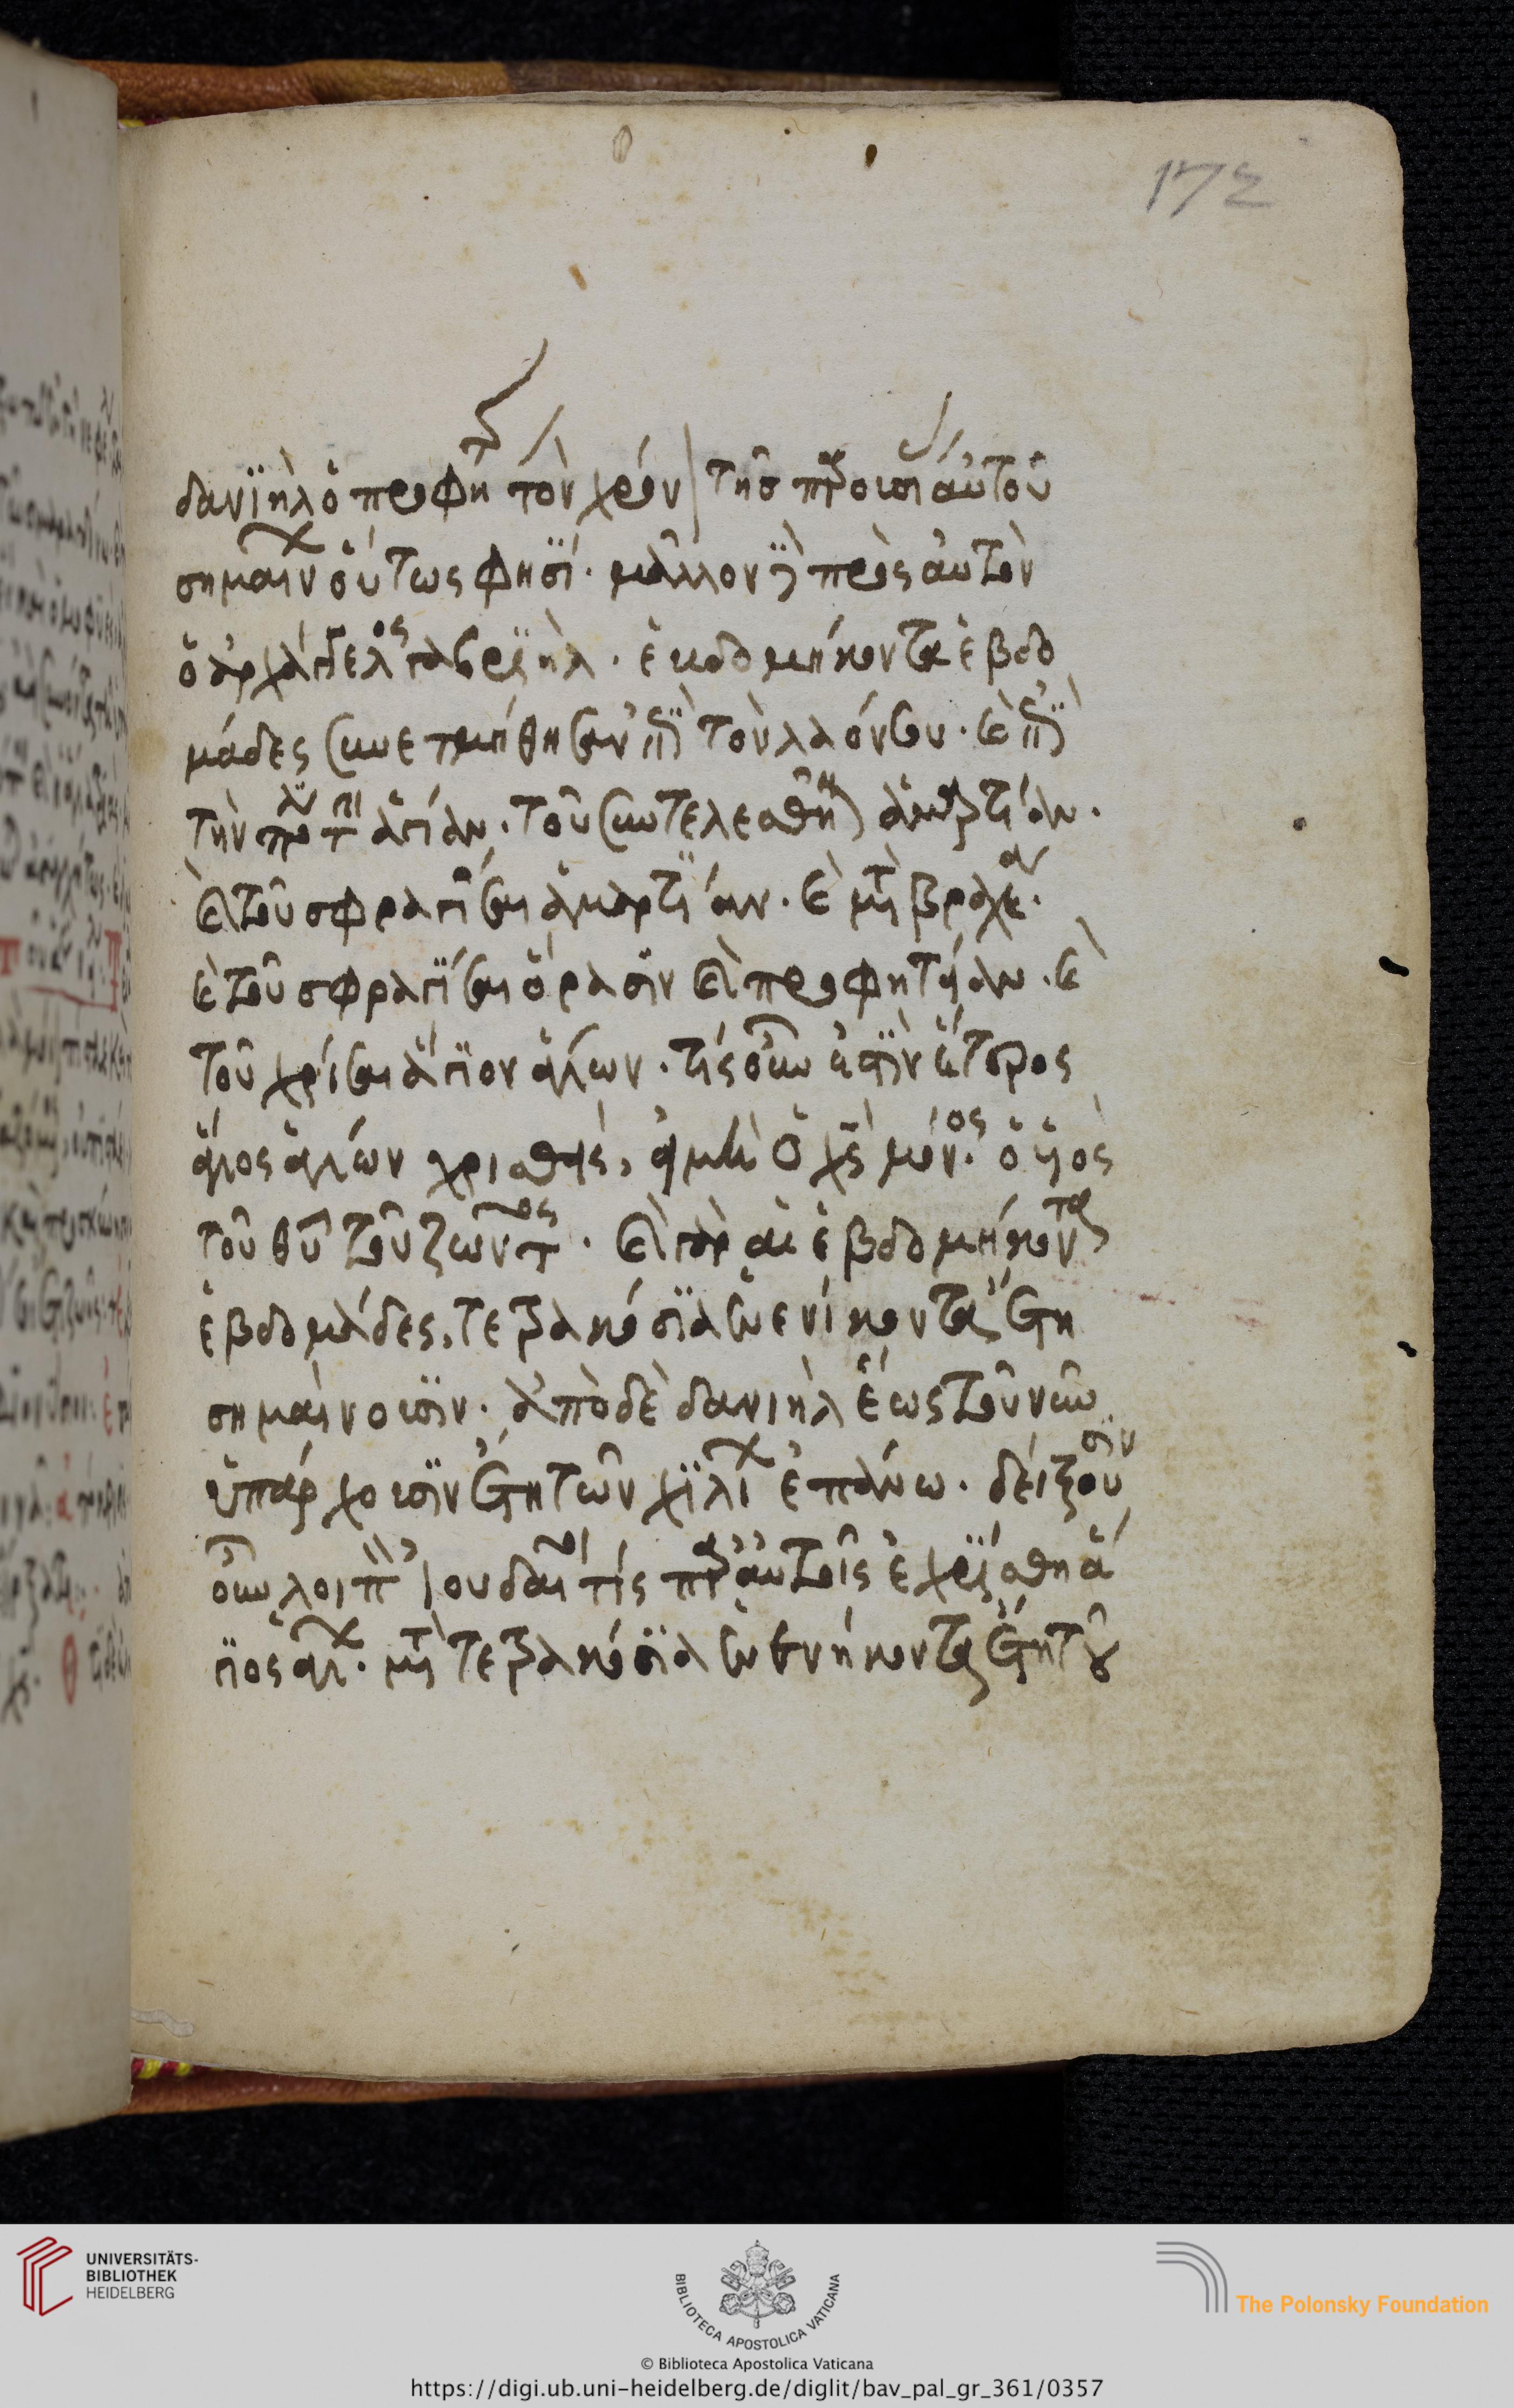 172
δανιὴλ ὁ προφή τὸν χρόν τῆσ προισί αὐτοῦ
σημαιν οὕτως φησί· μᾶλλον πρὸς αὐτὸν
ὁ ἀρχάγγελος γαβριὴλ· ἑβδομήκοντα ἑβδο
μάδες συνετμήθησαν ἐπὶ τὸν λαόν σου· καὶ ἐπὶ
τὴν πόλιν τὴν ἁγίαν· τοῦ συντελεσθῆναι ἁμαρτίαν·
καὶ τοῦ σφραγίσαι ἁμαρτίαν· καὶ μετὰ βραχέα·
καὶ τοῦ σφραγίσαι ὅρασιν καὶ προφητείαν· καὶ
τοῦ χρίσαι ἅγιον ἁγίων· τίς οὖν ἐστὶν ἕτερος
ἅγιος ἁγίων χρισθεὶς, εἰ μὴ ὁ χς μόνος· ὁ υἱὸς
τοῦ θυ τοῦ ζῶντος· καὶ γὰρ αἱ ἑβδομήκοντα
ἑβδομάδες, τετρακόσια ἐνενίκοντα ἔτη
σημαίνουσιν· ἀπὸ δὲ δανιὴλ ἕως τοῦ νῦν
ὑπάρχουσιν ἔτη τῶν χιλί ἐπάνω· δείξουσιν
οὖν λοιπὸν ἰουδαῖοι τίς παρ' αὐτοῖς ἐχρίσθη ἅ
γιος ἁγί· μετὰ τετρακόσια ἐνενήκοντα ἔτη τοῦ
UNIVERSITÄTS-
BIBLIOTHEK
HEIDELBERG
BIBLIOTECA APOSTOLICA VATICANA
The Polonsky Foundation
© Biblioteca Apostolica Vaticana
https://digi.ub.uni-heidelberg.de/diglit/bav_pal_gr_361/0357